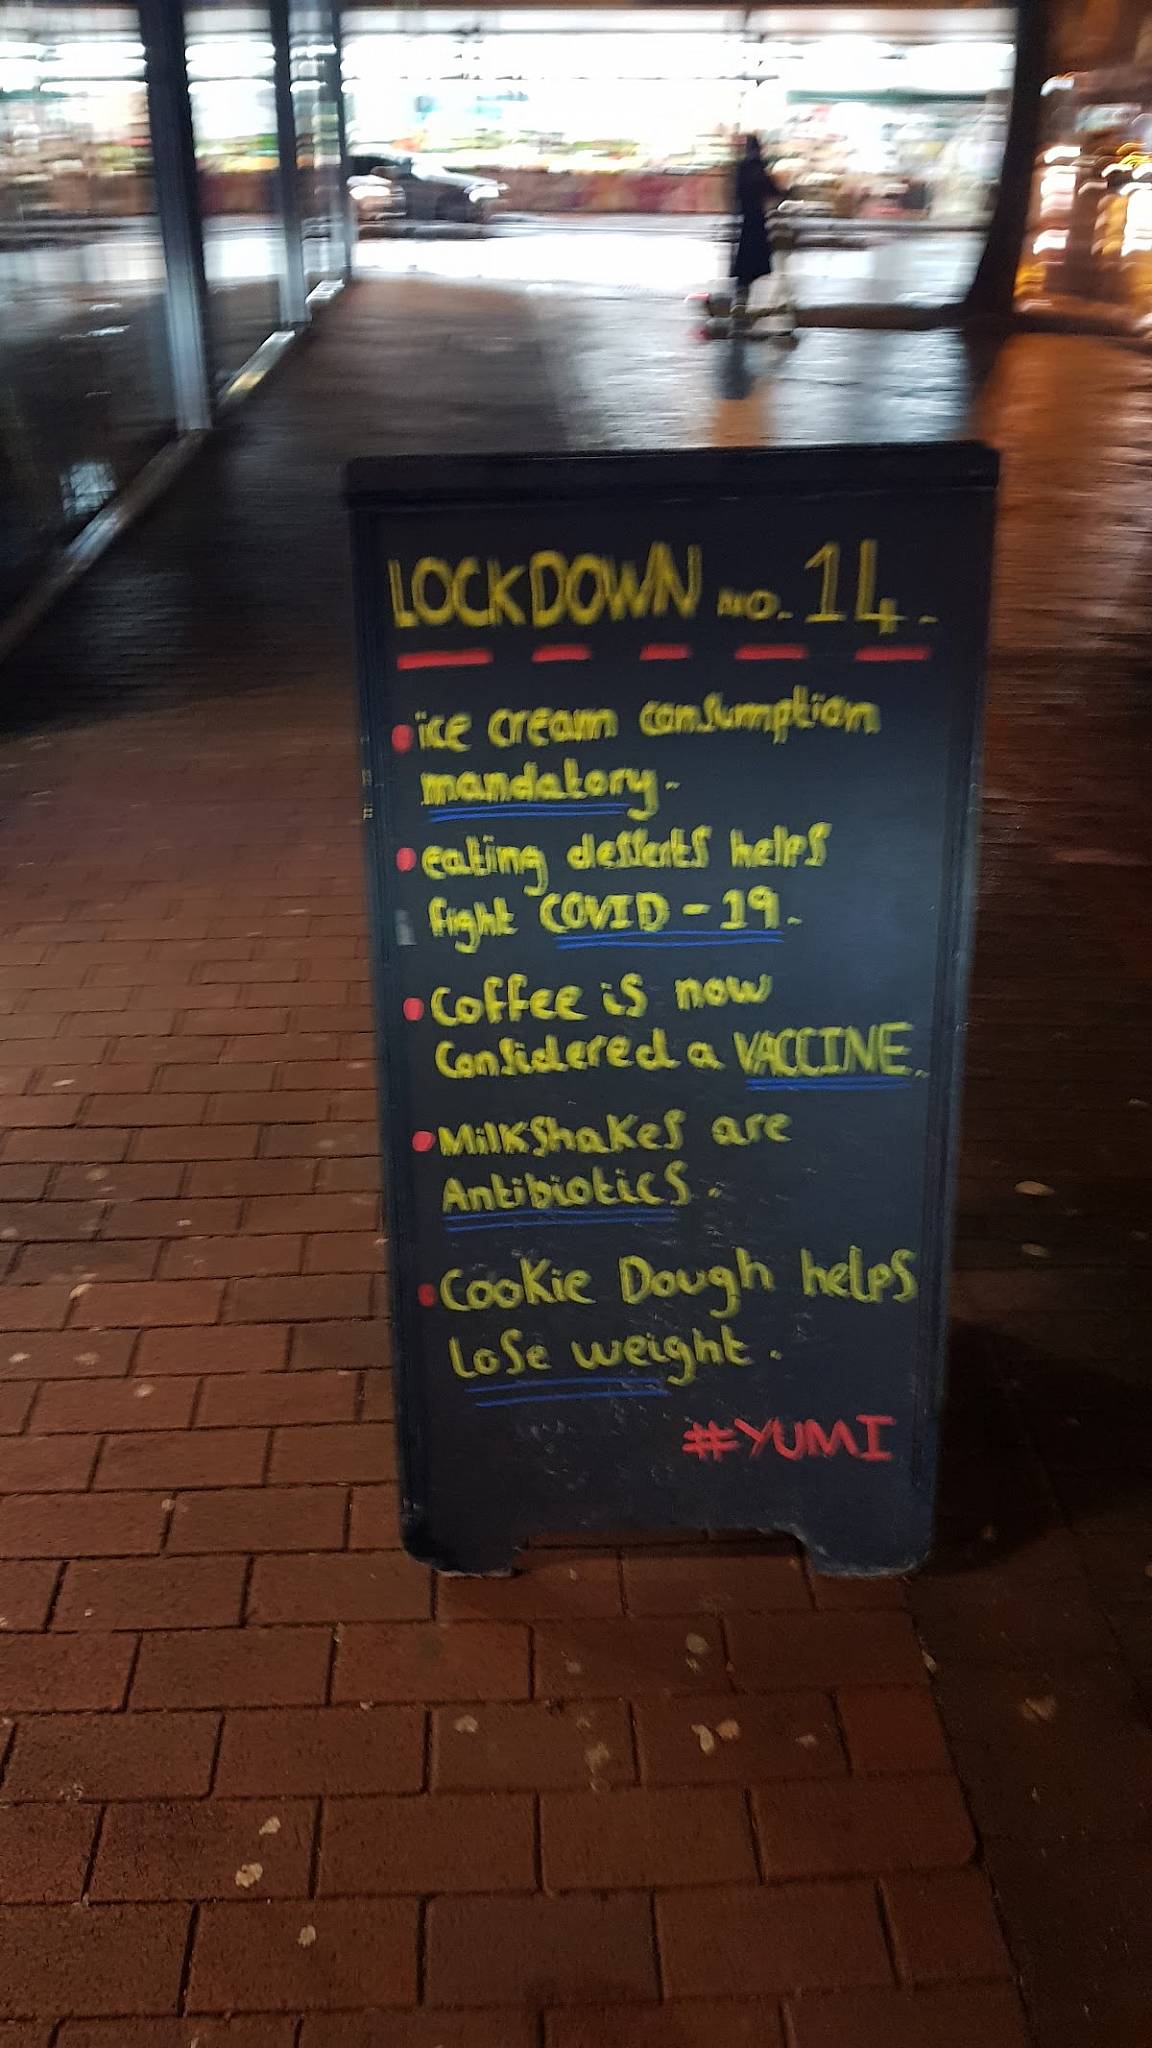 LOCKDOWN NO. 14.
ice cream consumption
mandatory.
eating desserts helps
fight COVID-19.
Coffee is now
Considered a VACCINE.
Milkshakes are
Antibiotics.
Cookie Dough helps
lose weight.
#YUMI